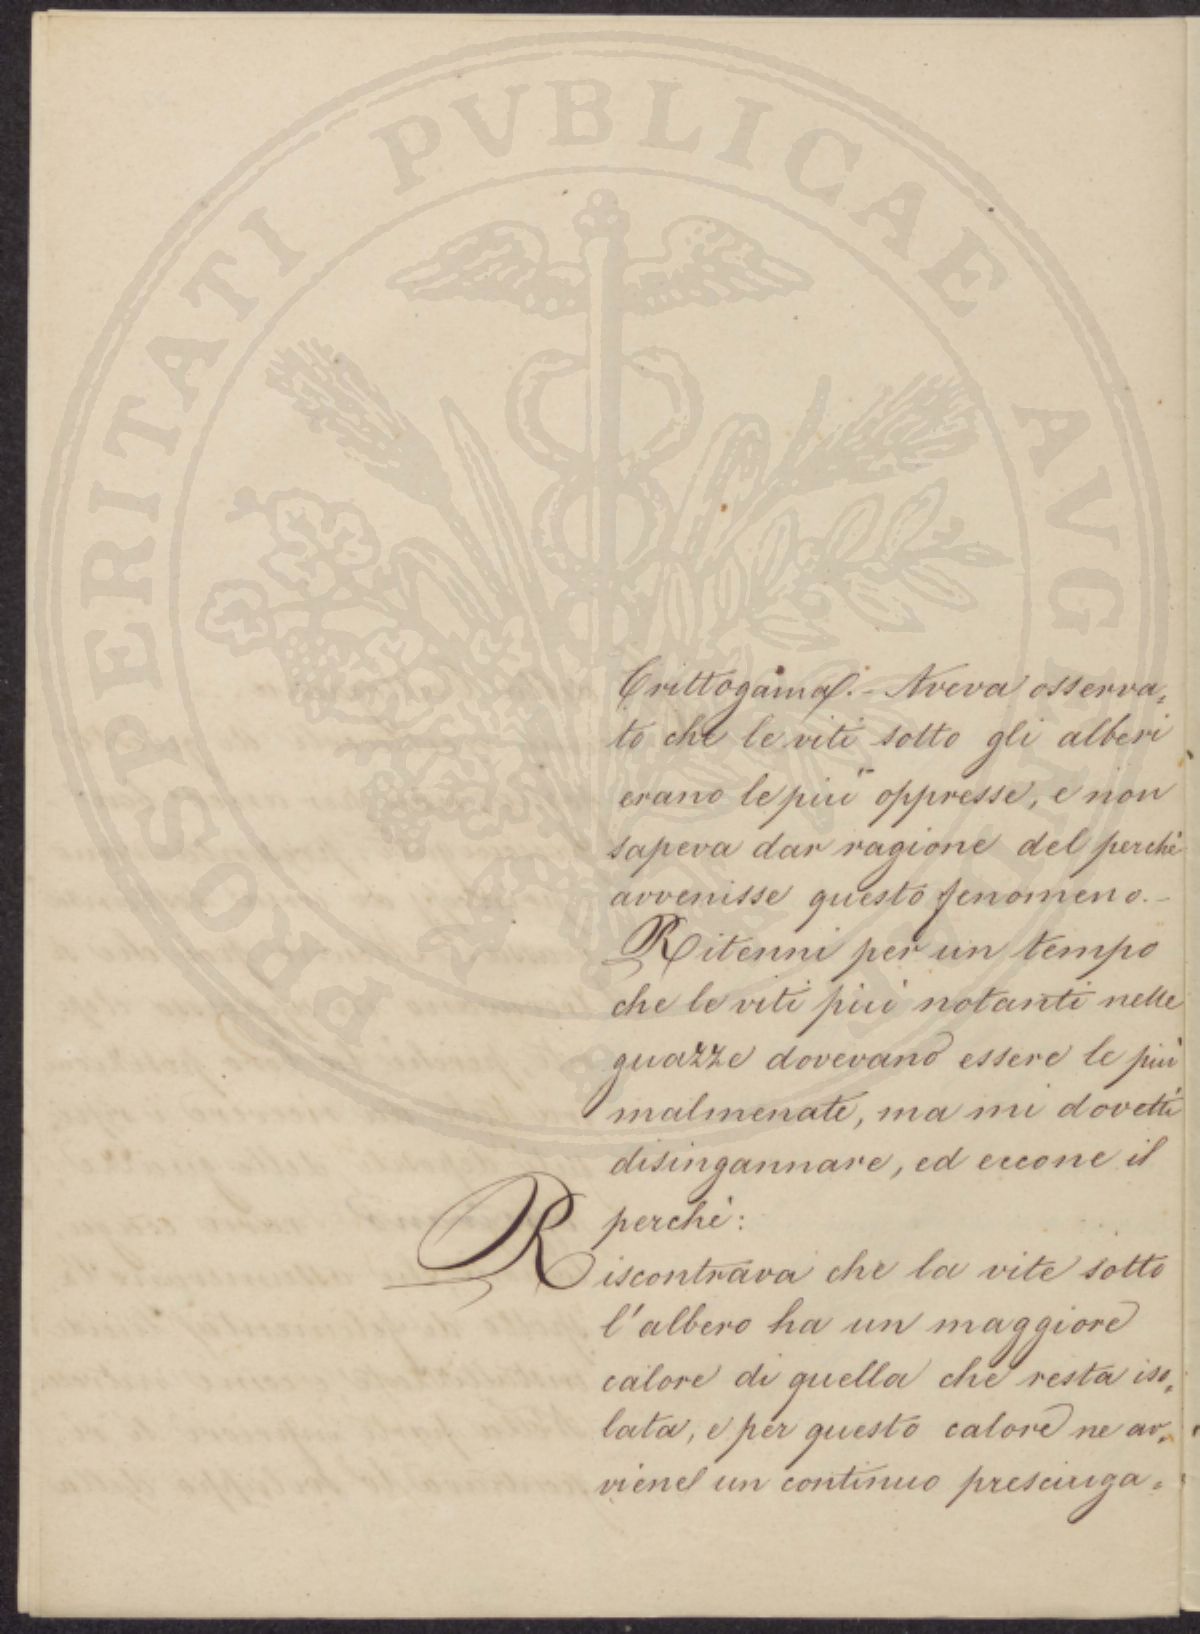 PROSPERITATI PVBLICAE AVGENDAE
Crittogama. - Aveva osserva,
to che le viti sotto gli alberi
erano le più oppresse, e non
sapeva dar ragione del perchè
avvenisse questo fenomeno. -
Ritenni per un tempo
che le viti più notanti nelle
guazze dovevano essere le più
malmenate, ma mi dovetti
disingannare, ed eccone il
perchè:
Riscontrava che la vite sotto
l'albero ha un maggiore
calore di quella che resta iso,
lata, e per questo calore ne av,
viene un continuo presciuga,